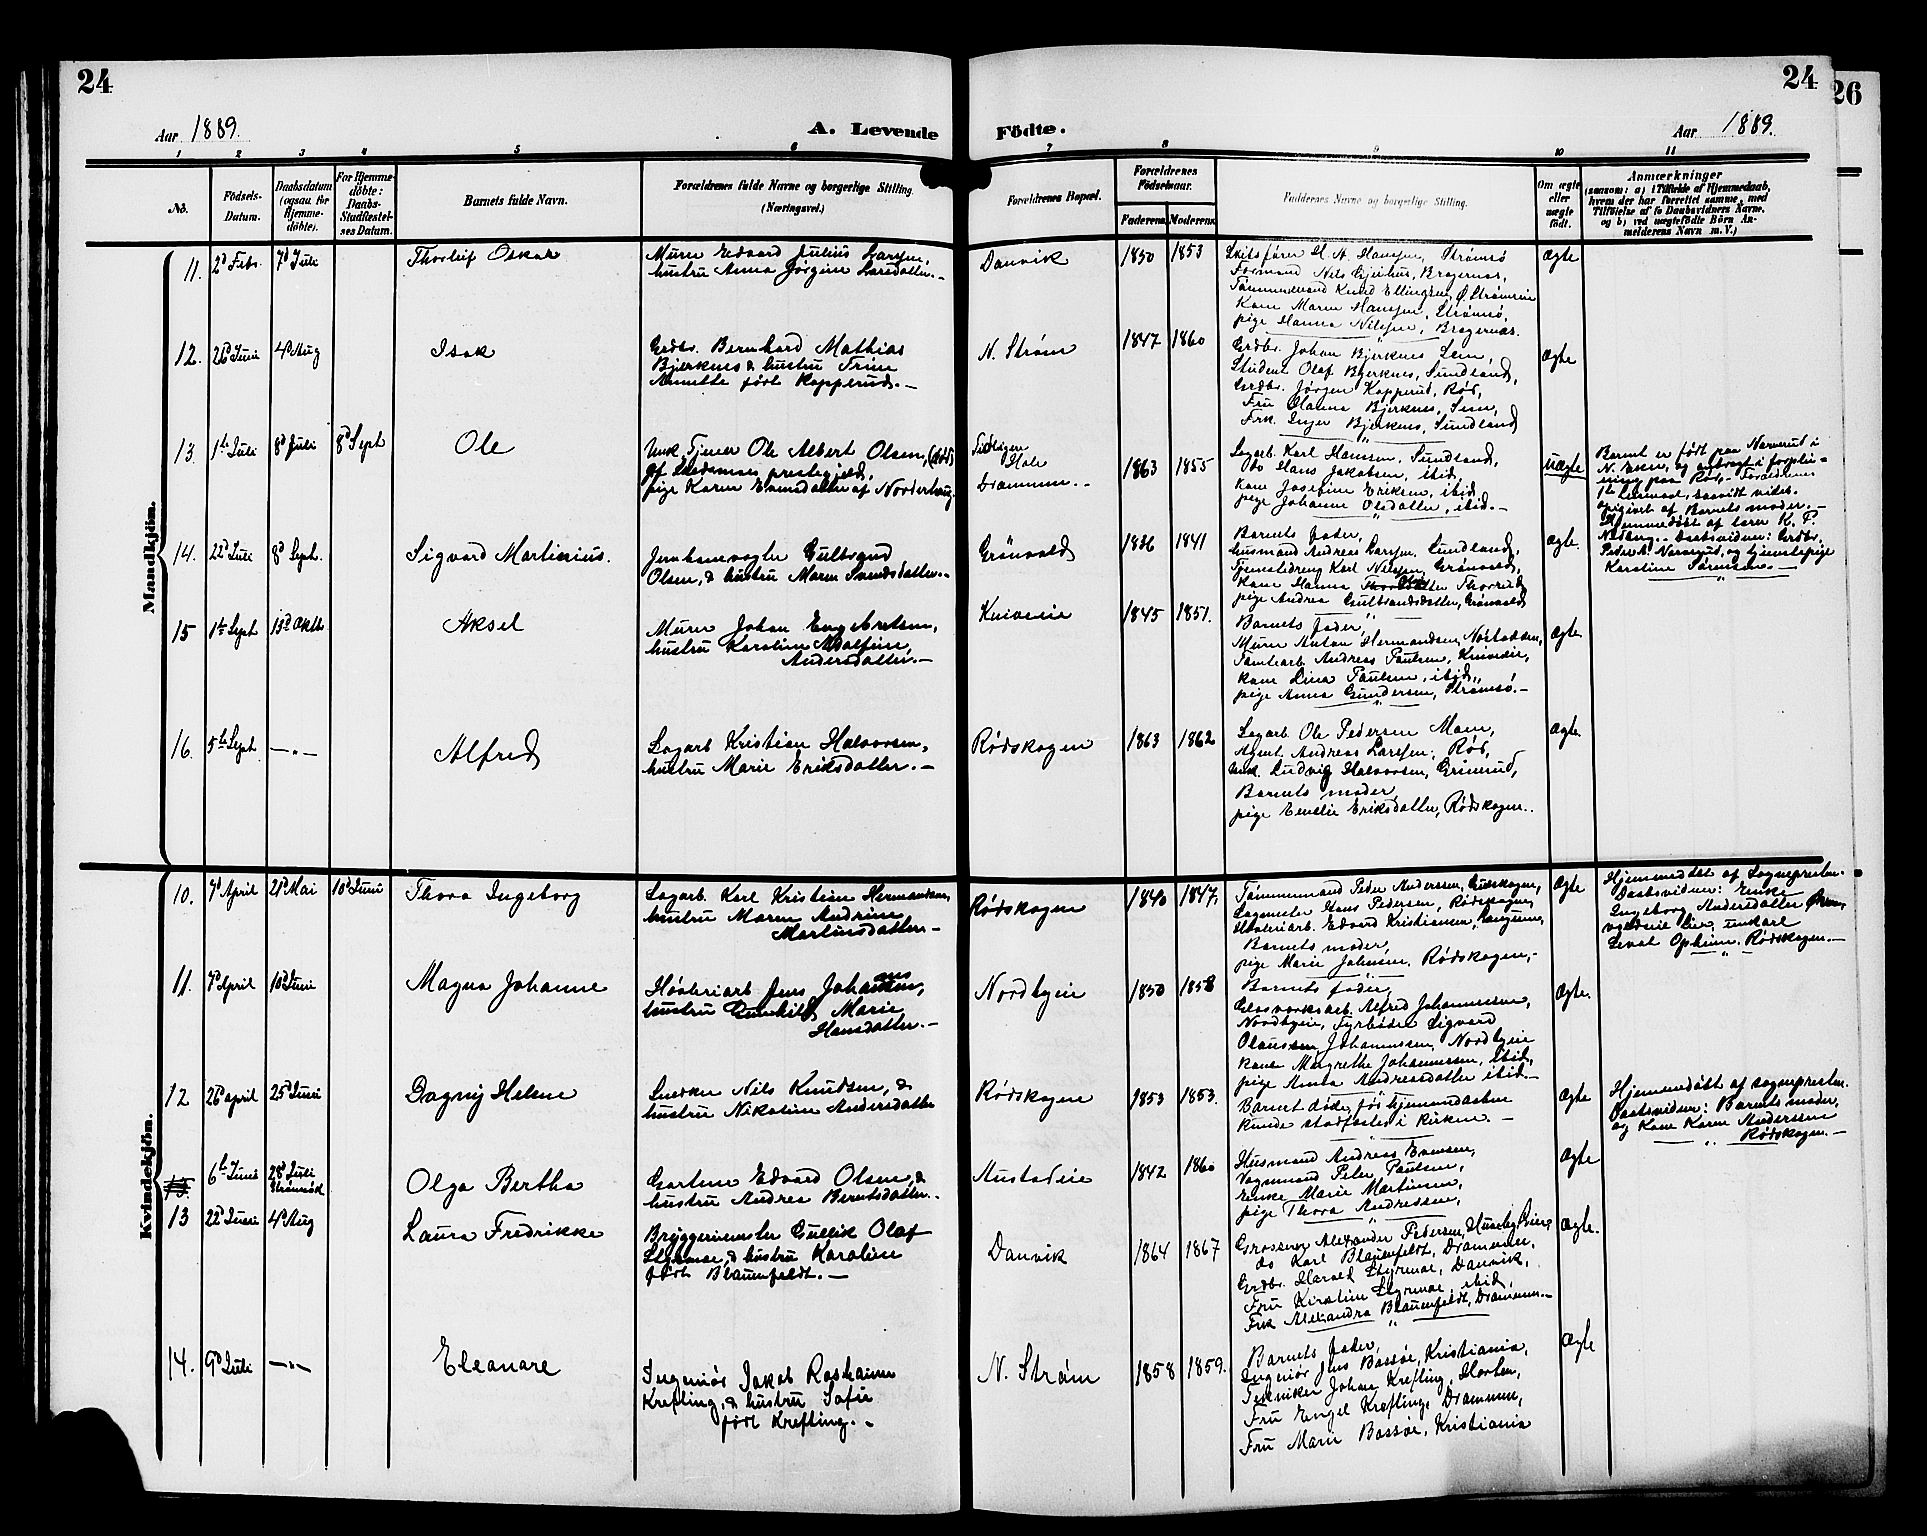 24
24
26
Aar 1889.
A. Levende
Födte.
Aar 1889.
1 2 3 4 5 6 7 8 9 10 11
No.
Födsels-
Datum.
Daabsdatum
(ogsaa for
Hjemme-
döbte).
For Hjemme-
döbte:
Daabs-
Stadfæstel-
ses Datum.
Barnets fulde Navn.
Forældrenes fulde Navne og borgerlige Stilling.
(Næringsvei.)
Forældrenes Bopæl.
Forældrenes
Födselsaar.
Faderens.
Moderens.
Faddernes Navne og borgerlige Stilling.
Om ægte
eller
uægte
födt.
Anmærkninger
(saasom: a) i Tilfælde af Hjemmedaab,
hvem der har forrettet samme, med
Tilföielse af to Daabsvidners Navne,
og b) ved uægtefödte Börn An-
melderens Navn m. V.)
Mandkjön.
11. 2d Febr. 7d Juli
Thorleif Oskar
Murer Edvard Julius Larsen,
hustru Anna Jørgine Larsdatter.-
Danvik
1850 1853
Skibsfører H. A. Hansen, Strømsø
Formand Nils Gjerhus, Bragernæs,
Tømmermand Knud Ellingsen, Ø. Strømsøe
Kone Maren Hansen, Strømsø,
pige Hanna Nilsen, Bragernæs.
Ægte
12. 26d Juni 4d Aug
Isak
Grdbr. Bernhard Mathias
Bjerknes & hustru Trine
Annette født Kopperud.-
N. Strøm
1847 1860
Grdbr. Johan Bjerknes Sem,
Student Olaf Bjerknes, Sundland,
Grdbr. Jørgen Kopperud, Rød,
Fru Olanna Bjerknes, Sem,
Frk. Inger Bjerknes, Sundland
Ægte
13. 1ste Juli 8d Juli 8d Sept
Ole
Unk. Tjener Ole Albert Olsen, (død)
af prestegjeld,
pige Karen Evensdatter af Norderhoug.
Tidligere
Hole
Drammen.-
1863 1855
Sagarb. Karl Hansen, Sundland,
Do Hans Jakobsen, ibid,
kone Josefine Eriksen, ibid.
pige Johanne Olsdatter, ibid.-
uægte
Barnet er født paa Narverud i
N. Eker, og anbragt i forplei-
ning paa Rød.- Forældrenes
1ste Leiermaal, saavidt vides.
opgivet af Barnets moder.-
Hjemmedøbt af lærer K. P.
Nedberg.- Daabsvidner: Grdbr.
Peder A. Narverud, og tjenestepige
Karoline Sørensen.-
14. 22d Juli 8d Sept.
Sigvard Martinius.
Jernbanevogter Gulbrand
Olsen, & hustru Maren Svendsdatter.-
Grønvold
1836 1841
Barnets fader,
Husmand Andreas Larsen, Sundland,
Tjenestedreng Karl Nilsen, Grønvold,
Kone Hanna Thorrud
pige Andrea Gulbrandsdatter, Grønvold
Ægte.
15 1ste Sept 13d Oktbr
Aksel
Murer Johan Engebretsen,
hustru Karoline Adolfine,
Andersdatter.-
Kniveeie
1845 1851.
Barnets fader,
Murer Anton Hermandsen, Nøstodden,
Tomtearb. Andreas Paulsen, Kniveeie,
kone Lina Paulsen, ibid,
pige Anna Gundersen, Strømsø.-
Ægte.
16. 5te Sept -"-
Alfred
Sagarb Kristian Halvorsen,
hustru Marie Eriksdatter.-
Rødskogen
1863 1862
Sagarb. Ole Pedersen Moen,
Agent. Andreas Larsen, Rød,
Unk. Ludvig Halvorsen, Grinerud,
Barnets moder,
pige Emelie Eriksdatter, Rødskogen..
Ægte.
Kvindekjön.
10. 7d April 21d Mai 10d Juni
Thora Ingeborg
Sagarb. Karl Kristian Hermansen,
hustru Maren Andrine
Martinsdatter-
Rødskogen
1840 1847.
Tømmermand Peder Anderssen, Gulskogen,
Sagmester Hans Pedersen, Rødskogen,
Høvleriarb. Edvard Kristiansen, Langums,
Barnets moder,
pige Marie Johnsen, Rødskogen,-
Ægte
Hjemmedøbt af Sognepresten.
Daabsvidner: Enke
Ingeborg Andersdatter
Lier, unkarl
Sevat Opheim. Rødskogen.-
11. 7d April 10d Juni
Magna Johanne
Høvleriarb. Jens Johansen,
hustru Gunhild Marie
Hansdatter.-
Nordbyeie
1850 1858
Barnets fader,
Glasværksarb. Alfred Johannessen,
Nordbyeie, Fyrbøder Sigvard
Olaussen, Johannessen, Nordbyeie
Kone Margrethe Johannessen, ibid,
pige Anna Andreasdatter ibid.-
Ægte.
12 26d april 25d Juni
Dagny Helene
Snedker Nils Knudsen, &
hustru Nikoline Andersdatter
Rødskogen
1853 1853.
Barnet døde, før hjemmedaaben
kunde stadfæstes i kirken.-
Ægte
Hjemmedøbt af sognepresten.
Daabsvidner: Barnets moder,
og Kone Karen Anderssen
Rødskogen.-
6te Juni 28d Juli
Strømsø k
Olga Bertha
Gartner Edvard Olsen, &
hustru Andrea Berntsdatter..
Austadeie
1842 1860
Husmand Andreas Evensen,
Vognmand Peter Paulsen,
Enke Marie Martinsen,
pige Thora Andresen,
Ægte
13 22d Juni 4d Aug
Laura Fredrikke
Bryggerimester Gullik Olaf
Styrmoe, & hustru Karoline
født Blauenfeldt.-
Danvik
1864 1867
Grosserer Alexander Pedersen, Huseby Lier,
do Karl Blauenfeldt, Drammen,
Grdbr. Harald Styrmoe, Danvik,
Fru Kirstine Styrmoe, ibid,
Frk Alexandra Blauenfeldt, Drammen.-
Ægte.
14. 9d Juli -"-
Eleanore
Ingeniør Jakob Roshauw
Krefting, & hustru Sofie
født Krefting.-
N. Strøm
1858 1859.
Barnets fader,
Ingeniør Jens Bassøe, Kristiania,
Tekniker Johan Krefting, Horten,
Fru Engel Krefting, Drammen,
Fru Marie Bassøe, Kristiania
Ægte